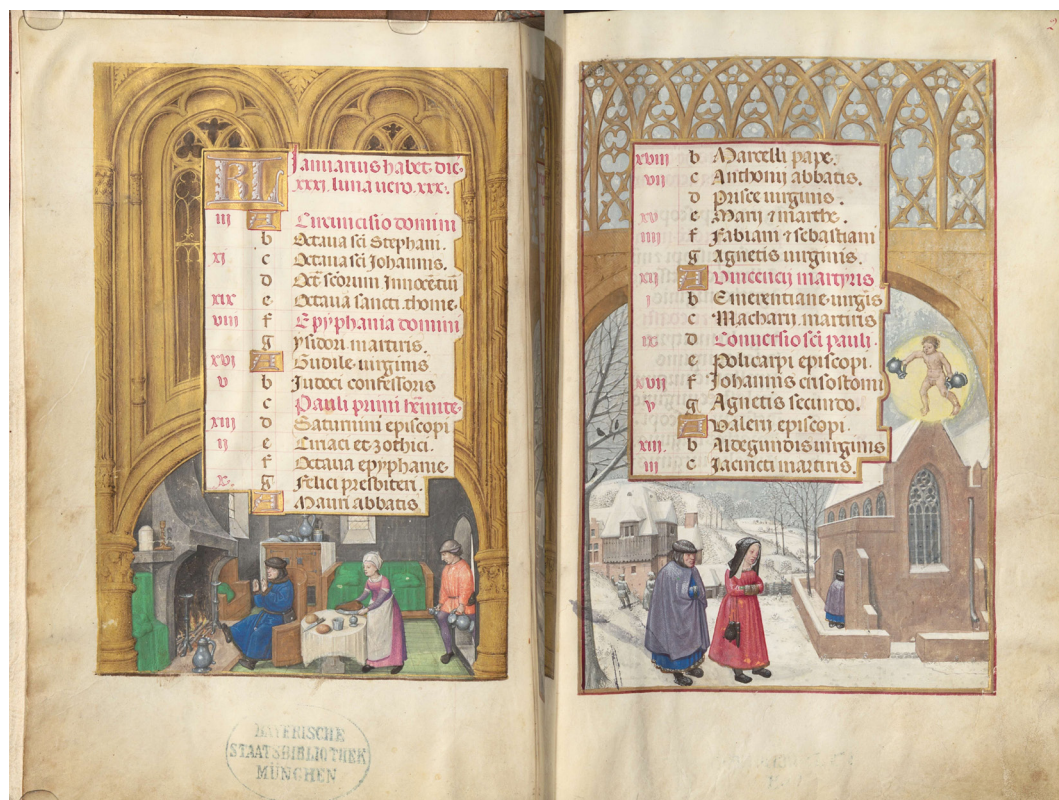 KL Januarius habet die⁊
xxxi. luna uero. xxx.
iii A Circuncisio domini
b Octaua sci Stephani.
xi c Octaua sci Johannis.
d Oct̄ scorum Innocētiū
xix e Octaua sancti thome.
viii f Epyphania domini
g ysidori martiris.
xvi A Gudile uirginis
v b Judoci confessoris
c Pauli primi hēmite.
xiii d Saturnini episcopi
ii e Ciriaci et zothici.
f Octaua epyphanie.
x. g Felici presbiteri.
A Mauri abbatis
BAYERISCHE
STAATSBIBLIOTHEK
MÜNCHEN
xviii b Marcelli pape.
vii c Anthonij abbatis.
d Prisce uirginis.
xv e Marij ⁊ marthe.
iiii f Fabiani ⁊ sebastiani
g Agnetis uirginis.
xii A Vincencij martyris
i b Emerentiane uirgīs
c Macharij martiris
ix d Conuersio sci pauli.
e Policarpi episcopi.
xvii f Johannis crisostomi
v g Agnetis secundo.
A Valerii episcopi.
xiii b Aldegundis uirginis
iii c Jacincti martiris.